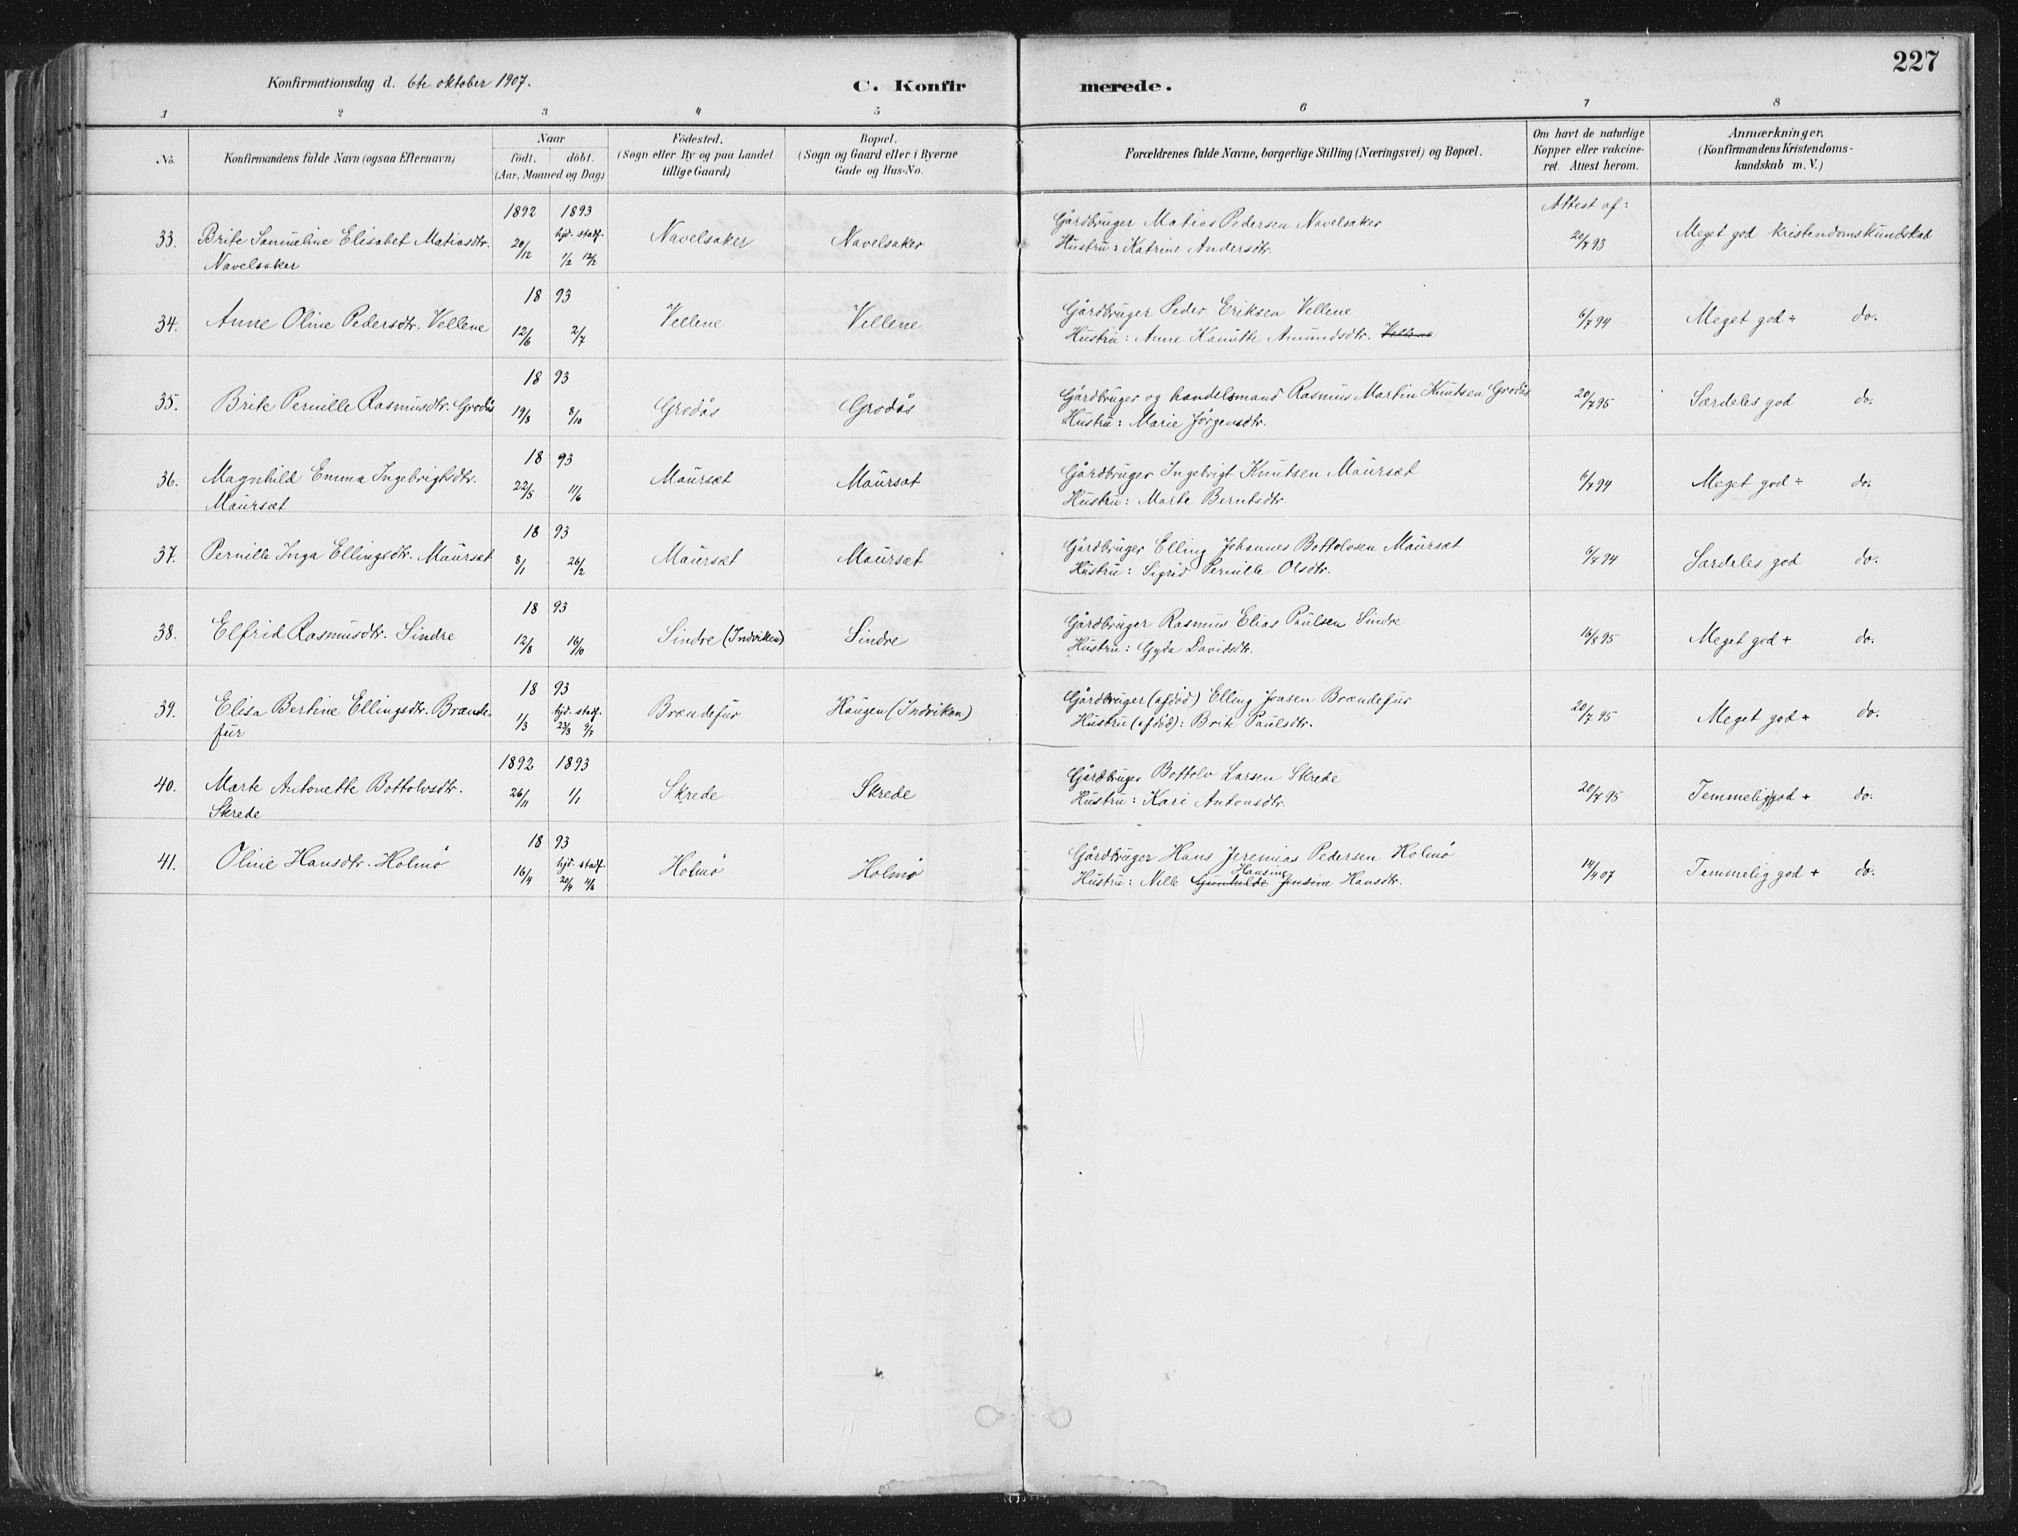 227
Konfirmationsdag d. 6te oktober 1907.
C. Konfirmerede.
1 2 3 4 5 6 7 8
No. Konfirmandens fulde Navn (ogsaa Efternavn) Naar födt. döbt. (Aar, Maaned og Dag) Födested. (Sogn eller By og paa Landet tillige Gaard) Bopæl. (Sogn og Gaard eller i Byerne Gade og Hus-No. Forældrenes fulde Navne, borgerlige Stilling (Næringsvei) og Bopæl. Om havt de naturlige Kopper eller vakcineret. Attest herom. Anmærkninger. (Konfirmandens Kristendomskundskab m. V.)
1892 1893 Attest af:
33. Brite Samueline Elisabet Matiasdtr. 20/12 hjd. stadf. Navelsaker Navelsaker Gårdbruger Matias Pedersen Navelsaker 22/7 93 Meget god kristendomskundskab
Navelsaker 1/2 12/2 Hustru: Katrine Andersdtr.
18 93
34. Anne Oline Pedersdtr. Vellene 12/6 2/7 Vellene Vellene Gårdbruger Peder Eriksen Vellene 6/7 94 Meget god ÷ do.
Hustru: Anne Hanütte Amundsdtr. Vellene
18 93
35. Brite Pernille Rasmusdtr. Grodås 19/8 8/10 Grodås Grodås Gårdbruger og handelsmand Rasmus Martin Knutsen Grodås 20/7 95 Særdeles god do.
Hustru: Marie Jørgensdtr.
18 93
36. Magnhild Emma Ingebrigtsdtr. 22/5 11/6 Maursæt Maursæt Gårdbruger Ingebrigt Knutsen Maursæt 6/7 94 Meget god ÷ do.
Maursæt Hustru: Marte Berntsdtr.
18 93
37. Pernille Inga Ellingsdtr. Maursæt 8/1 26/2 Maursæt Maursæt Gårdbruger Elling Johannes Bottolvsen Maursæt 6/7 94 Særdeles god do.
Hustru: Sigrid Pernille Olsdtr.
18 93
38. Elfrid Rasmusdtr. Sindre 12/8 16/10 Sindre (Indviken) Sindre Gårdbruger Rasmus Elias Paulsen Sindre 16/8 95 Meget god + do.
Hustru: Gyda Davidsdtr.
18 93
39. Elisa Bertine Ellingsdtr. Brænde- 1/3 hjd. stadf. Brændefur Haugen (Indviken) Gårdbruger (afdød) Elling Jonsen Brændefur 20/7 95 Meget god + do.
fur 23/3 9/7 Hustru (afdød): Brite Paulsdtr.
1892 1893
40. Marte Antonette Bottolvsdtr. 26/11 1/1 Skrede Skrede Gårdbruger Bottolv Larsen Skrede 20/7 95 Temmelig god + do.
Skrede Hustru: Kari Antonsdtr.
18 93
41. Oline Hansdtr. Holmø 16/4 hjd. stadf. Holmø Holmø Gårdbruger Hans Jeremias Pedersen Holmø 14/4 07 Temmelig god + do.
20/4 4/6 Hustru: Nille Gunhilde Jensine Hansine Hansdtr.